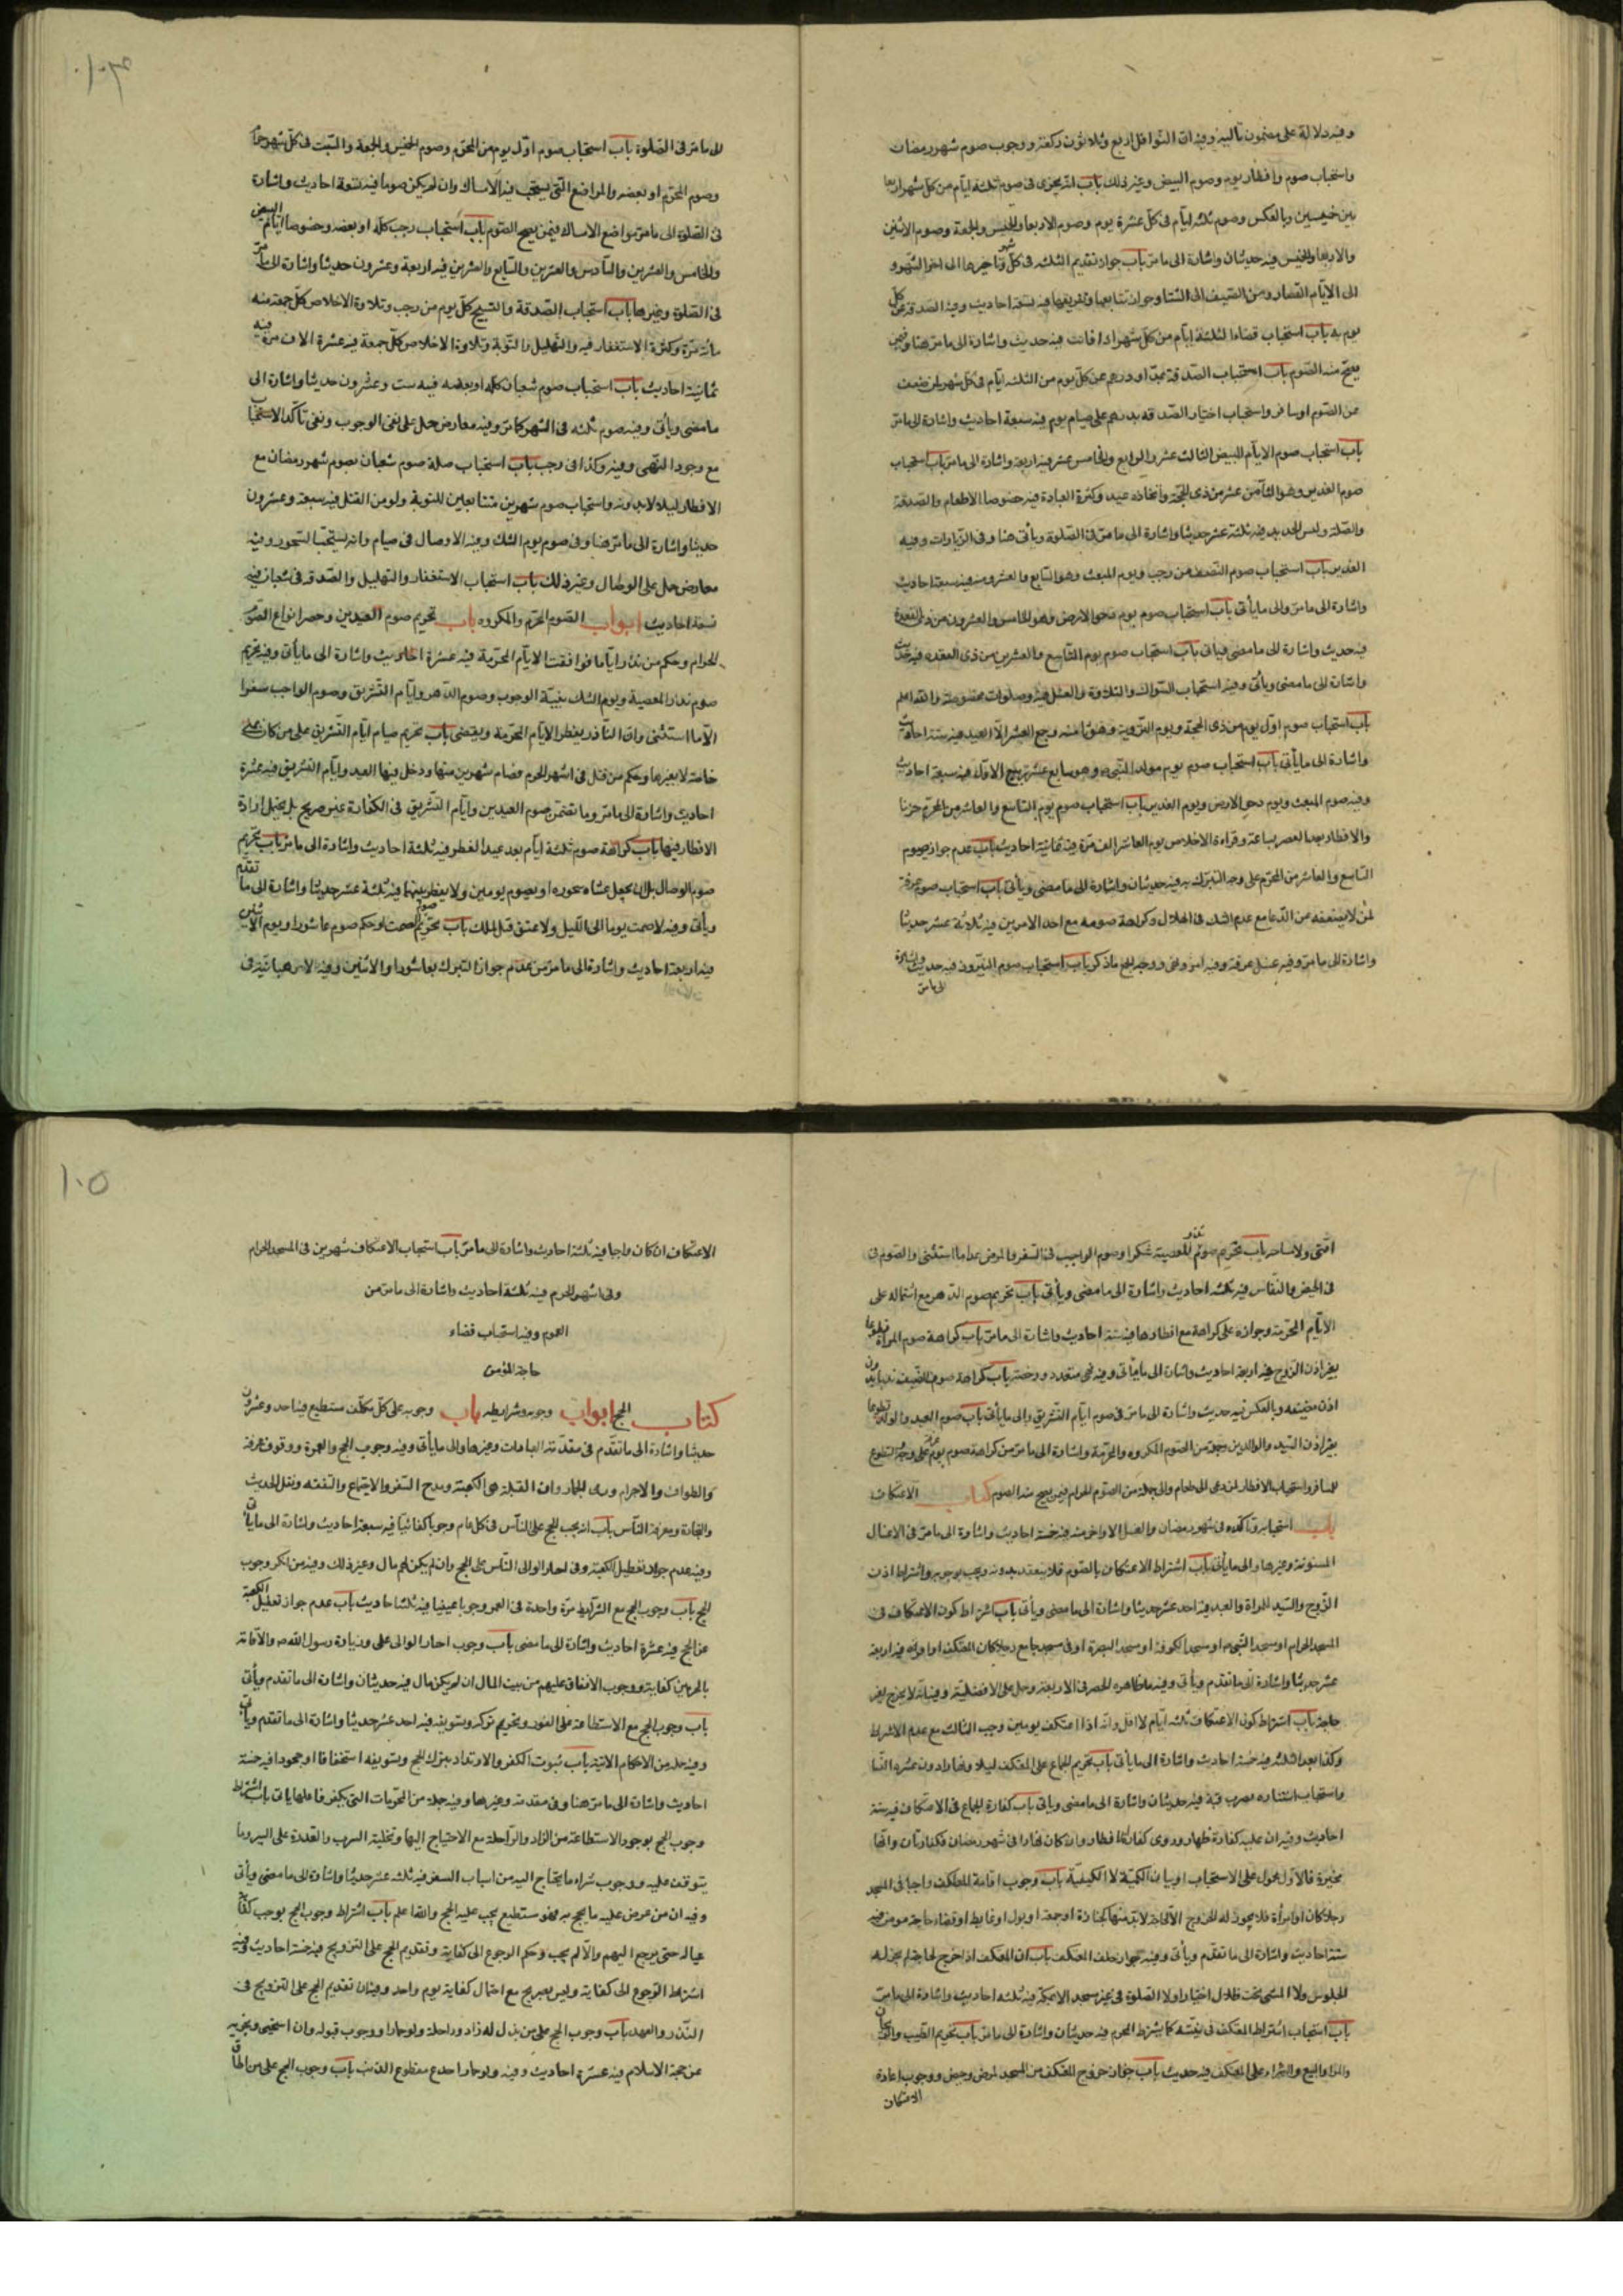 وفيه دلالة على مضمون تاليه وفيه ان النوافل اربع وثلاثون ركعة ووجوب صوم شهر رمضان
واستحباب صوم وافطار يوم وصوم البيض وغير ذلك باب انه يجزى فى صوم ثلثة ايام من كل شهر اربعا
بين خميسين وبالعكس وصوم ثلثه ايام فى كل عشرة يوم وصوم الاربعا والخميس والجمعة وصوم الاثنين
والاربعا والخميس فيه حديثان واشارة الى ما مر باب جواز تقديم الثلثه فى كل شهر وتاخيرها الى اخر الشهر و
الى الايام القصار ومن الصيف الى الشتا وجواز تتابعها وتفريقها فيه تسعة احاديث وفيه الصدقة عن كل
يوم بمد باب استحباب قضاء الثلثة ايام من كل شهر اذا فاتت فيه حديث واشارة الى ما مر هنا وفيمن
يصح منه الصوم باب استحباب الصدقة بمد او درهم عن كل يوم من الثلثه ايام فى كل شهر لمن ضعف
عن الصوم او سافر واستحباب اختيار الصدقه بدرهم على صيام يوم فيه سبعة احاديث واشارة الى ما مر
باب استحباب صوم الايام البيض الثالث عشر والرابع والخامس عشر فيه اربعة واشارة الى ما مر باب استحباب
صوم الغدير وهو الثامن عشر من ذى الحجة واتخاذه عيدا وكثرة العبادة فيه خصوصا الاطعام والصدقة
والصلة ولبس الجديد فيه ثلثة عشر حديثا واشارة الى ما مر فى الصلوة ويأتى هنا وفى الزيارات وفيه
الغدير باب استحباب صوم النصف من رجب ويوم المبعث وهو السابع والعشرون منه فيه سبعة احاديث
واشارة الى ما مر والى ما يأتى باب استحباب صوم يوم دحو الارض وهو الخامس والعشرون من ذى القعدة
فيه حديث واشارة الى ما مضى وياتى باب استحباب صوم يوم التاسع والعشرين من ذى القعده فيه حديث
واشارة الى ما مضى ويأتى وفيه استحباب السواك والتلاوة والغسل فيه وصلوات مخصوصة والله اعلم
باب استحباب صوم اول يوم من ذى الحجة ويوم التروية وهو ثامنه وجميع العشر الا العيد فيه ستة احاديث
واشارة الى ما يأتى باب استحباب صوم يوم مولد النبى وهو سابع عشر ربيع الاول فيه سبعة احاديث
وفيه صوم المبعث ويوم دحو الارض ويوم الغدير باب استحباب صوم يوم التاسع والعاشر من المحرم حزنا
والافطار بعد العصر بساعة وقراءة الاخلاص يوم العاشر الف مرة فيه ثمانية احاديث باب عدم جواز صوم
التاسع والعاشر من المحرم على وجه التبرك به فيه حديثان واشارة الى ما مضى ويأتى باب استحباب صوم عرفة
لمن لا يضعفه عن الدعا مع عدم الشك فى الهلال وكراهة صومه مع احد الامرين فيه ثلاثة عشر حديثا
واشارة الى ما مر وفيه غسل عرفة وفيه امر ونهى ووجه الجمع ما ذكر باب استحباب صوم النيروز فيه حديث واشارة
الى ما مر
الى ما مر فى الصلوة باب استحباب صوم اول يوم من المحرم وصوم الخميس والجمعة والسبت فى كل شهر حرام
وصوم المحرم او بعضه والمواضع التى يستحب فيه الامساك وان لم يكن صوما فيه تسعة احاديث واشارة
فى الصلوة الى ما مر مواضع الامساك فيمن يصح الصوم باب استحباب رجب كله او بعضه وخصوصا ايام البيض
والخامس والعشرين والسادس والعشرين والسابع والعشرين فيه اربعة وعشرون حديثا واشارة الى ما مر
فى الصلوة وغيرها باب استحباب الصدقة والتسبيح كل يوم من رجب وتلاوة الاخلاص كل جمعة منه
مائة مرة وكثرة الاستغفار فيه والتهليل والتوبة وتلاوة الاخلاص كل جمعة فيه عشرة الاف مرة فيه
ثمانية احاديث باب استحباب صوم شعبان كله او بعضه فيه ست وعشرون حديثا واشارة الى
ما مضى ويأتى وفيه صوم ثلثه فى الشهر كما مر وفيه معارض حمل على نفى الوجوب ونفى تاكد الاستحباب
مع وجود النهى وفيه وكذا فى رجب باب استحباب صلة صوم شعبان بصوم شهر رمضان مع
الافطار ليلا لا بدونه واستحباب صوم شهرين متتابعين للتوبة ولو من القتل فيه سبعة وعشرون
حديثا واشارة الى ما مر هنا وفى صوم يوم الشك وفيه الاوصال فى صيام وانه يستحب السحور وفيه
معارض حمل على الوصال وغير ذلك باب استحباب الاستغفار والتهليل والصدقه فى شعبان فيه
تسعة احاديث ابواب الصوم المحرم والمكروه باب تحريم صوم العيدين وحصر انواع الصوم
الحرام وحكم من نذر اياما فوافقت الايام المحرمة فيه عشرة احاديث واشارة الى ما يأتى وفيه تحريم
صوم نذر المعصية ويوم الشك بنية الوجوب وصوم الدهر وايام التشريق وصوم الواجب سفرا
الا ما استثنى وان الناذر يفطر الايام المحرمة ويقضى باب تحريم صيام ايام التشريق على من كان بمنى
خاصة لا بغيرها وحكم من قتل فى اشهر الحرم فصام شهرين منها ودخل فيها العيد وايام التشريق فيه عشرة
احاديث واشارة الى ما مر وما تضمن صوم العيدين وايام التشريق فى الكفارة غير صريح بل يحتمل ارادة
الافطار فيها باب كراهة صوم ثلثة ايام بعد عيد الفطر فيه ثلثة احاديث واشارة الى ما مر باب تحريم
صوم الوصال بان يجعل عشاه سحوره او يصوم يومين ولا يفطر بينهما فيه ثلثة عشر حديثا واشارة الى ما تقدم
ويأتى وفيه لا صمت يوما الى الليل ولا عتق قبل الملك باب تحريم صوم الصمت وحكم صوم عاشورا ويوم الاثنين
فيه اربعة احاديث واشارة الى ما مر من عدم جواز التبرك بعاشورا والاثنين وفيه لا رهبانية فى
امتى ولا سياحة باب تحريم صوم نذر المعصية شكرا وصوم الواجب فى السفر والمرض عدا ما استثنى والصوم فى
فى الحيض والنفاس فيه ثلثه احاديث واشارة الى ما مضى ويأتى باب تحريم صوم الدهر مع اشتماله على
الايام المحرمة وجوازه على كراهة مع افطارها فيه ستة احاديث واشارة الى ما مر باب كراهة صوم المراة تطوعا
بغير اذن الزوج فيه اربعة احاديث واشارة الى ما يأتى وفيه نهى متعدد ورخصة باب كراهة صوم الضيف ندبا بدون
اذن مضيفه وبالعكس فيه حديث واشارة الى ما مر فى صوم ايام التشريق والى ما يأتى باب صوم العبد والولد تطوعا
بغير اذن السيد والوالدين وجملة من الصوم المكروه والمحرمة واشارة الى ما مر من كراهة صوم يوم عرفة على وجه التطوع
للسافر واستحباب الافطار لمن دعى الى طعام والى جملة من الصوم الحرام فيمن يصح منه الصوم كتاب الاعتكاف
باب استحبابه وتاكده فى شهر رمضان والعشر الاواخر منه فيه خمسة احاديث واشارة الى ما مر فى الاغسال
المسنونة وغيرها والى ما يأتى باب اشتراط الاعتكاف بالصوم فلا ينعقد بدونه ويجب بوجوبه واشتراط اذن
الزوج والسيد للمراة والعبد فيه احد عشر حديثا واشارة الى ما مضى ويأتى باب اشتراط كون الاعتكاف فى
المسجد الحرام او مسجد النبى او مسجد الكوفة او مسجد البصرة او فى مسجد جامع رجلا كان المعتكف او امراة فيه اربعة
عشر حديثا واشارة الى ما تقدم ويأتى وفيه ما ظاهره الحصر فى الاربعة وحمل على الافضلية وفيه انه لا يخرج لغير
حاجة باب اشتراط كون الاعتكاف ثلثه ايام لا اقل وانه اذا اعتكف يومين وجب الثالث مع عدم الاشتراط
وكذا بعد الثلثه فيه خمسة احاديث واشارة الى ما يأتى باب تحريم الجماع على المعتكف ليلا ونهارا دون عشرة النسا
واستحباب استتاره بضرب قبة فيه حديثان واشارة الى ما مضى وياتى باب كفارة الجماع فى الاعتكاف فيه ستة
احاديث وفيه ان عليه كفارة ظهار وروى كفارة افطار وان كان نهارا فى شهر رمضان فكفارتان وانها
مخيرة فالاول محمول على الاستحباب او بيان الكمية لا الكيفية باب وجوب اقامة المعتكف واجبا فى المسجد
رجلا كان او امراة فلا يجوز له الخروج الا لحاجة لا بد منها كجنازة او جمعة او بول او غايط او قضاء حاجة مومن فيه
ستة احاديث واشارة الى ما تقدم ويأتى وفيه جواز حلف المعتكف باب ان المعتكف اذا خرج لحاجة لم يجز له
الجلوس ولا المشى تحت ظلال اختيارا ولا الصلوة فى غير مسجده الا بمكة فيه ثلثه احاديث واشارة الى ما مر
باب استحباب اشتراط المعتكف فى نفسه كما يشترط المحرم فيه حديثان واشارة الى ما مر باب تحريم الطيب والريحان
والمرا والبيع والشراء على المعتكف فيه حديث باب جواز خروج المعتكف من المسجد لمرض وحيض ووجوب اعادة
الاعتكاف
١٠٥
الاعتكاف ان كان واجبا فيه ثلثة احاديث واشارة الى ما مر باب استحباب الاعتكاف شهرين فى المسجد الحرام
وفى اشهر الحرم فيه ثلثة احاديث واشارة الى ما مر من
العموم وفيه استحباب قضاء
حاجة المؤمن
كتاب الحج ابواب وجوبه وشرايطه باب وجوبه على كل مكلف مستطيع فيه احد وعشرون
حديثا واشارة الى ما تقدم فى مقدمة العبادات وغيرها والى ما يأتى وفيه وجوب الحج والعمرة ووقوف عرفة
والطواف والاحرام ورمى الجمار وان القبلة هى الكعبة ومدح السفر والاجتماع والتفقه ونقل الحديث
والتجارة ومعرفة الناس باب انه يجب الحج على الناس فى كل عام وجوبا كفائيا فيه سبعة احاديث واشارة الى ما ياتى
وفيه عدم جواز تعطيل الكعبة وفى اجبار الوالى الناس على الحج وان لم يكن لهم مال وغير ذلك وفيه من انكر وجوب
الحج باب وجوب الحج مع الشرايط مرة واحدة فى العمر وجوبا عينيا فيه ثلثة احاديث باب عدم جواز تعطيل الكعبة
عن الحج فيه عشرة احاديث واشارة الى ما مضى باب وجوب اجبار الوالى على زيارة رسول الله ص والاقامة
بالحرمين كفاية ووجوب الانفاق عليهم من بيت المال ان لم يكن مال فيه حديثان واشارة الى ما تقدم ويأتى
باب وجوب الحج مع الاستطاعة على الفور وتحريم تركه وتسويفه فيه احد عشر حديثا واشارة الى ما تقدم وياتى
وفيه جملة من الاحكام الاتية باب ثبوت الكفر والارتداد بترك الحج وتسويفه استخفافا او جحودا فيه خمسة
احاديث واشارة الى ما مر هنا وفى مقدمة وغيرها وفيه جملة من المحرمات التى يكفر فاعلها ياتى باب اشتراط
وجوب الحج بوجود الاستطاعة من الزاد والراحلة مع الاحتياج اليها وتخلية السرب والقدرة على المسير وما
يتوقف عليه ووجوب شراء ما يحتاج اليه من اسباب السفر فيه ثلثه عشر حديثا واشارة الى ما مضى ويأتى
وفيه ان من عرض عليه ما يحج به فهو مستطيع يجب عليه الحج والله اعلم باب اشتراط وجوب الحج بوجوب كفاية
عياله حتى يرجع اليهم والا لم يجب وحكم الرجوع الى كفاية وتقديم الحج على التزويج فيه خمسة احاديث وفيه
اشتراط الرجوع الى كفاية وليس بصريح مع احتمال كفاية يوم واحد وفيه ان تقديم الحج على التزويج فى
النذر والعهد باب وجوب الحج على من بذل له زاد وراحلة ولو حمارا ووجوب قبوله وان استحيى ويجزيه
عن حجة الاسلام فيه عشرة احاديث وفيه ولو حمار اجدع مقطوع الذنب باب وجوب الحج على من اطاق